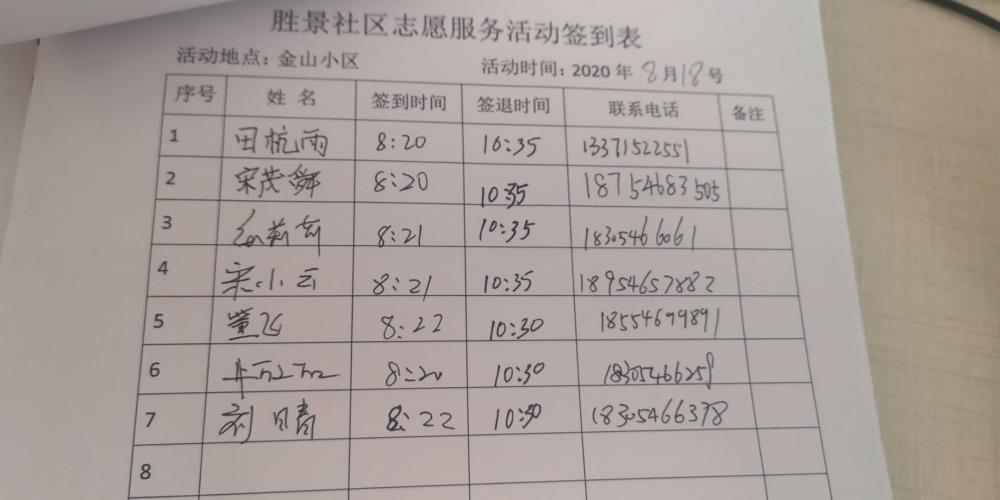 胜景社区志愿服务活动签到表
活动地点：金山小区 活动时间：2020 年 8月18号
序号 姓 名 签到时间 签退时间 联系电话 备注
1 田杭雨 8:20 10:35 13371522551
2 宋茂舜 8:20 10:35 18754683505
3 8:21 10:35 18305466061
4 宋小云 8:21 10:35 18954657882
5 董飞 8:22 10:30 18554699891
6 8:20 10:30 18305466259
7 刘晴 8:22 10:30 18305466378
8